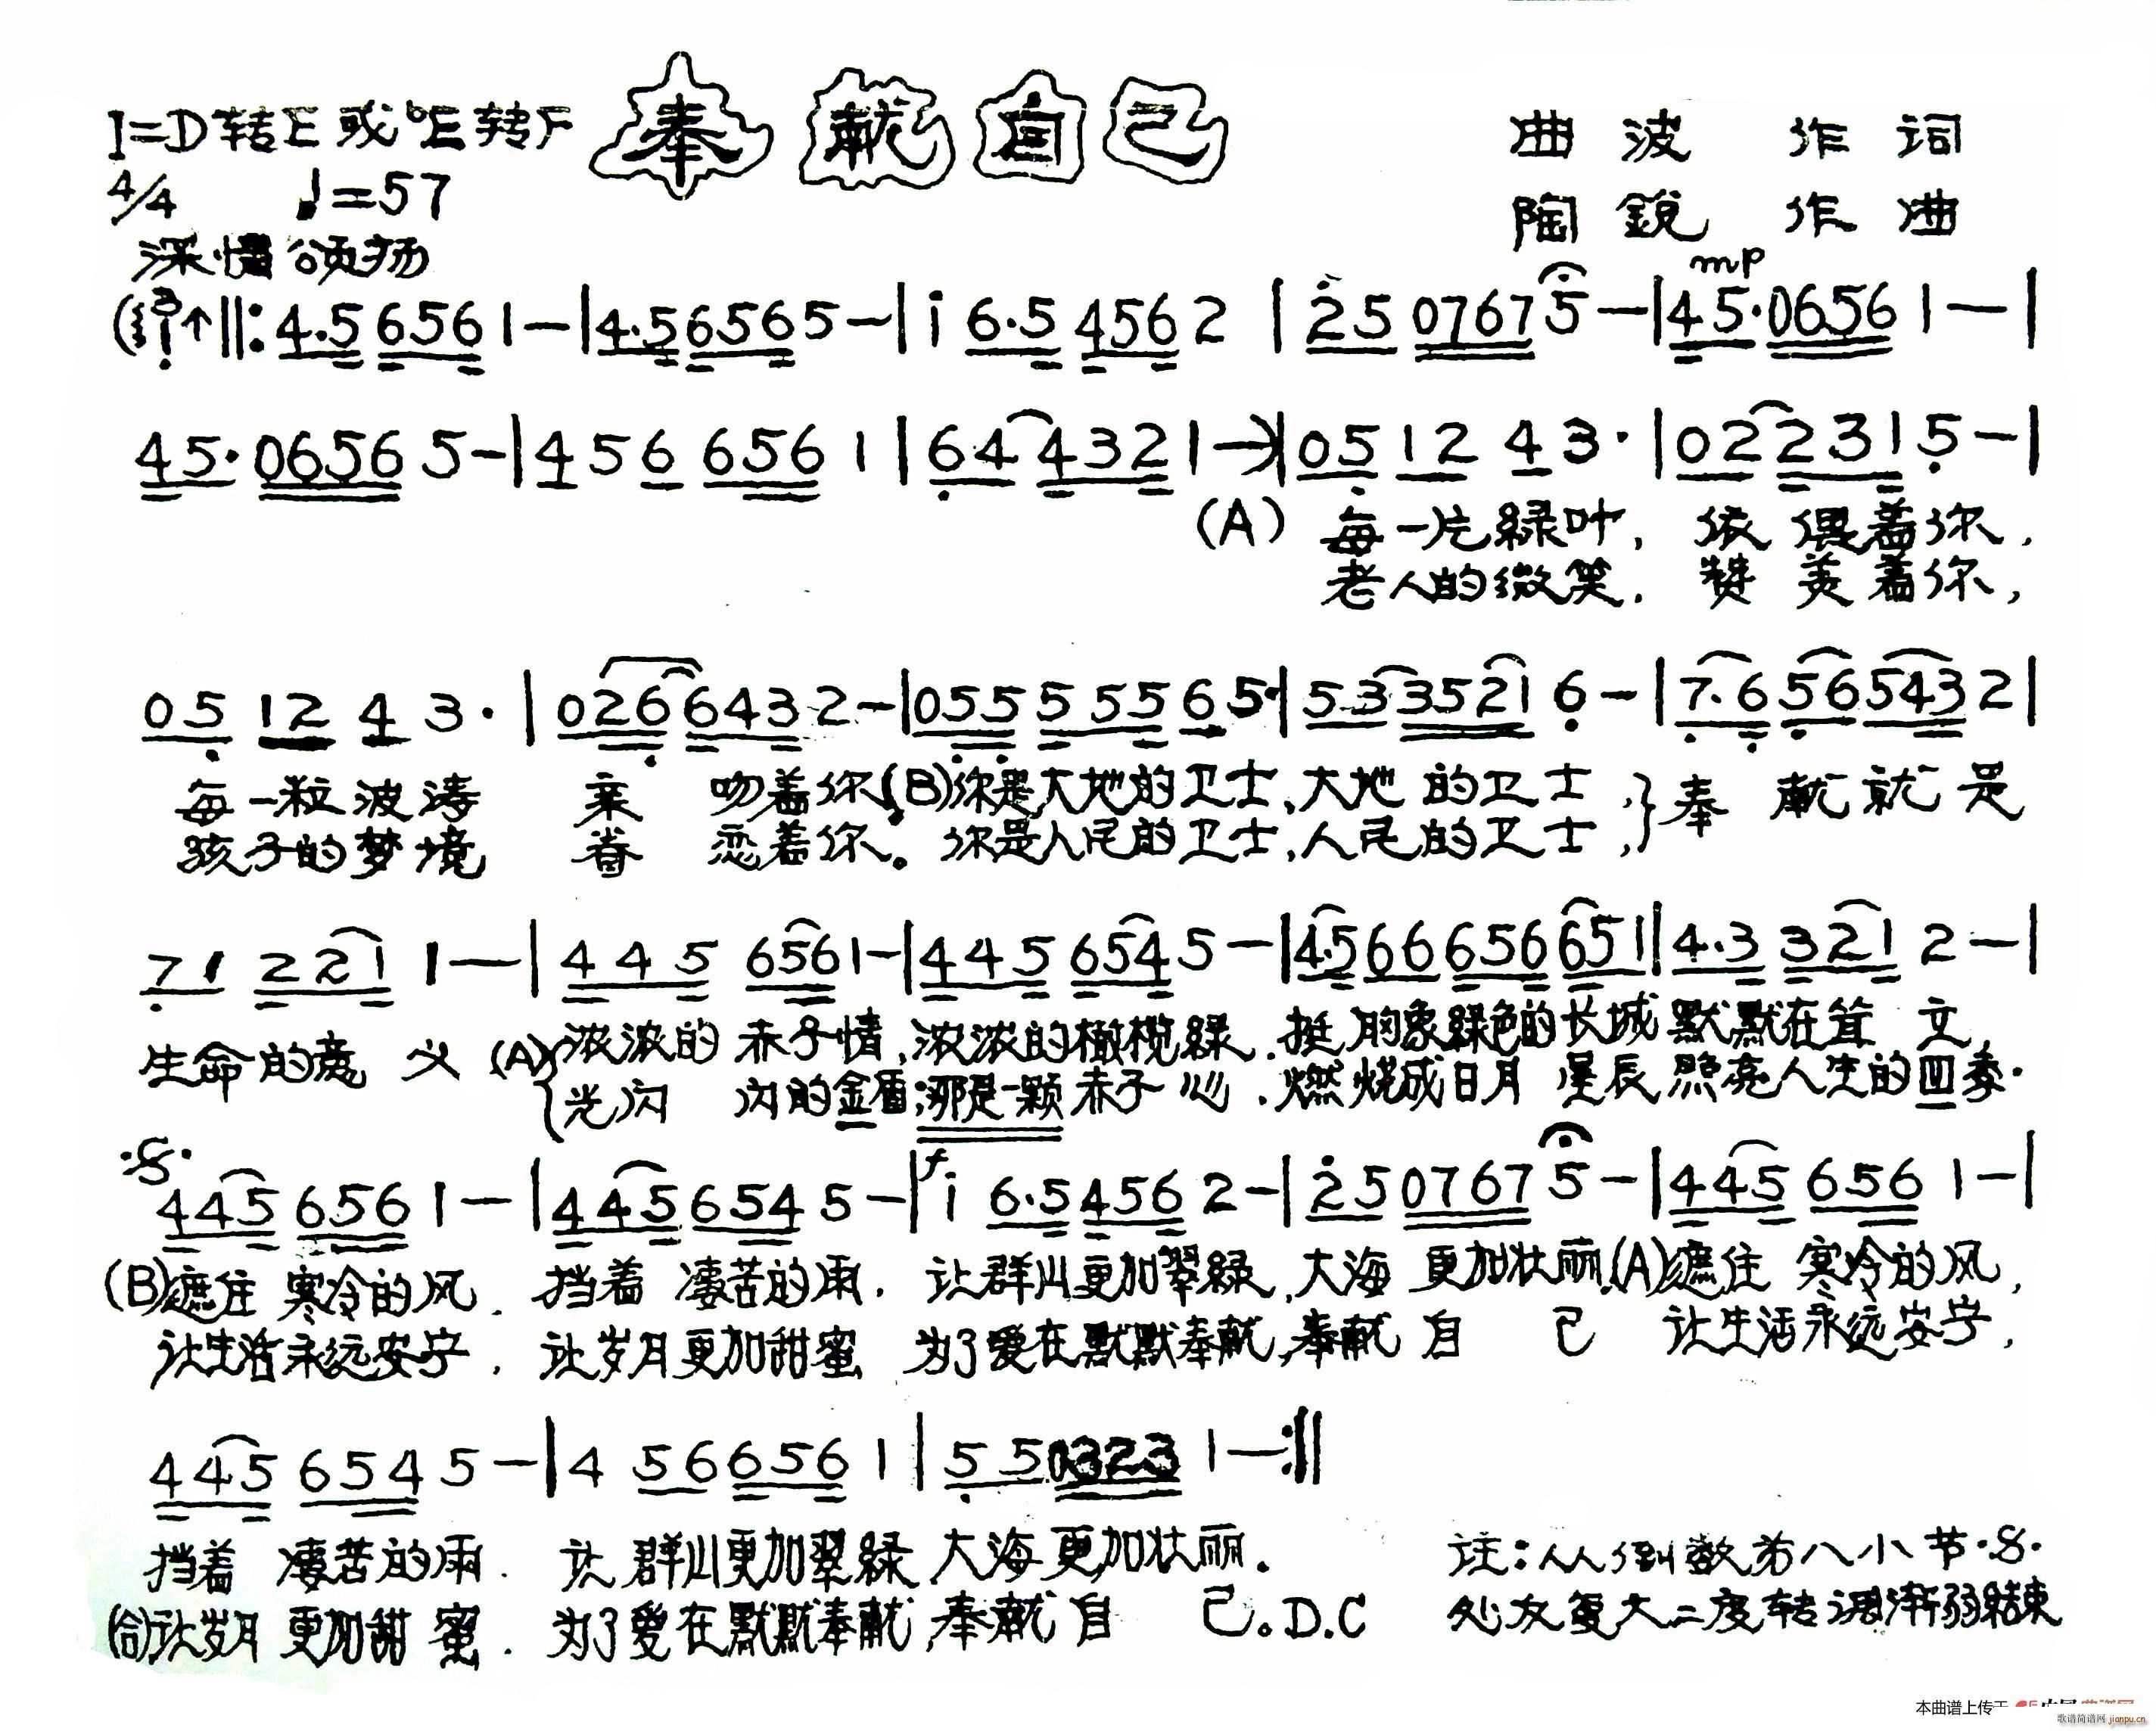 奉献自己
1=D转E或♭E转F
曲波 作词
4/4 ♩=57
陶鋭 作曲
深情 颂扬
mp
(3↑‖:4.5 656 1—|4.5 656 5—|i 6·5 456 2|2 5 0767 5—|4 5·0656 1—|
4 5·0656 5—|4 5 6 656 1|6 4 4 3 2 1—)|0 5 1 2 4 3·|0 2 2 3 1 5—|
(A) 每一片緑叶, 依偎着你,
老人的微笑. 赞美着你,
0 5 1 2 4 3·|0 2 6 6 4 3 2—|0 5 5 5 5 5 6 5·|5 3 3 5 2 1 6—|7.6 5 6 5 4 3 2|
每一粒波涛 亲吻着你(B)你是大地的卫士,大地的卫士,}奉献就是
孩子的梦境 眷恋着你。你是人民的卫士,人民的卫士,
7 1 2 2 1 1—|4 4 5 6 5 6 1—|4 4 5 6 5 4 5—|4.5 6 6 6 5 6 6 5 1|4.3 3 2 1 2—|
生命的意义 (A){浓浓的赤子情,浓浓的橄榄緑.挺胸象緑色的长城默默在耸立,
光闪闪的金盾;那是一颗赤子心.燃烧成日月星辰照亮人生的四季.
4 4 5 6 5 6 1—|4 4 5 6 5 4 5—|f i 6·5 4 5 6 2—|2 5 0 7 6 7 5—|4 4 5 6 5 6 1—|
(B)遮住寒冷的风. 挡着凄苦的雨. 让群山更加翠緑,大海更加壮丽.(A)遮住寒冷的风,
让生活永远安宁, 让岁月更加甜蜜 为了爱在默默奉献,奉献自己 让生活永远安宁,
4 4 5 6 5 4 5—|4 5 6 6 5 6 1|5 5 0323 1—:‖
挡着凄苦的雨. 让群山更加翠緑大海更加壮丽.
注:从倒数第八小节·S·
(合)让岁月更加甜蜜. 为了爱在默默奉献,奉献自己。D.C
处反复大二度转调渐弱结束
本曲谱上传于
歌谱简谱网 jianpu.cn